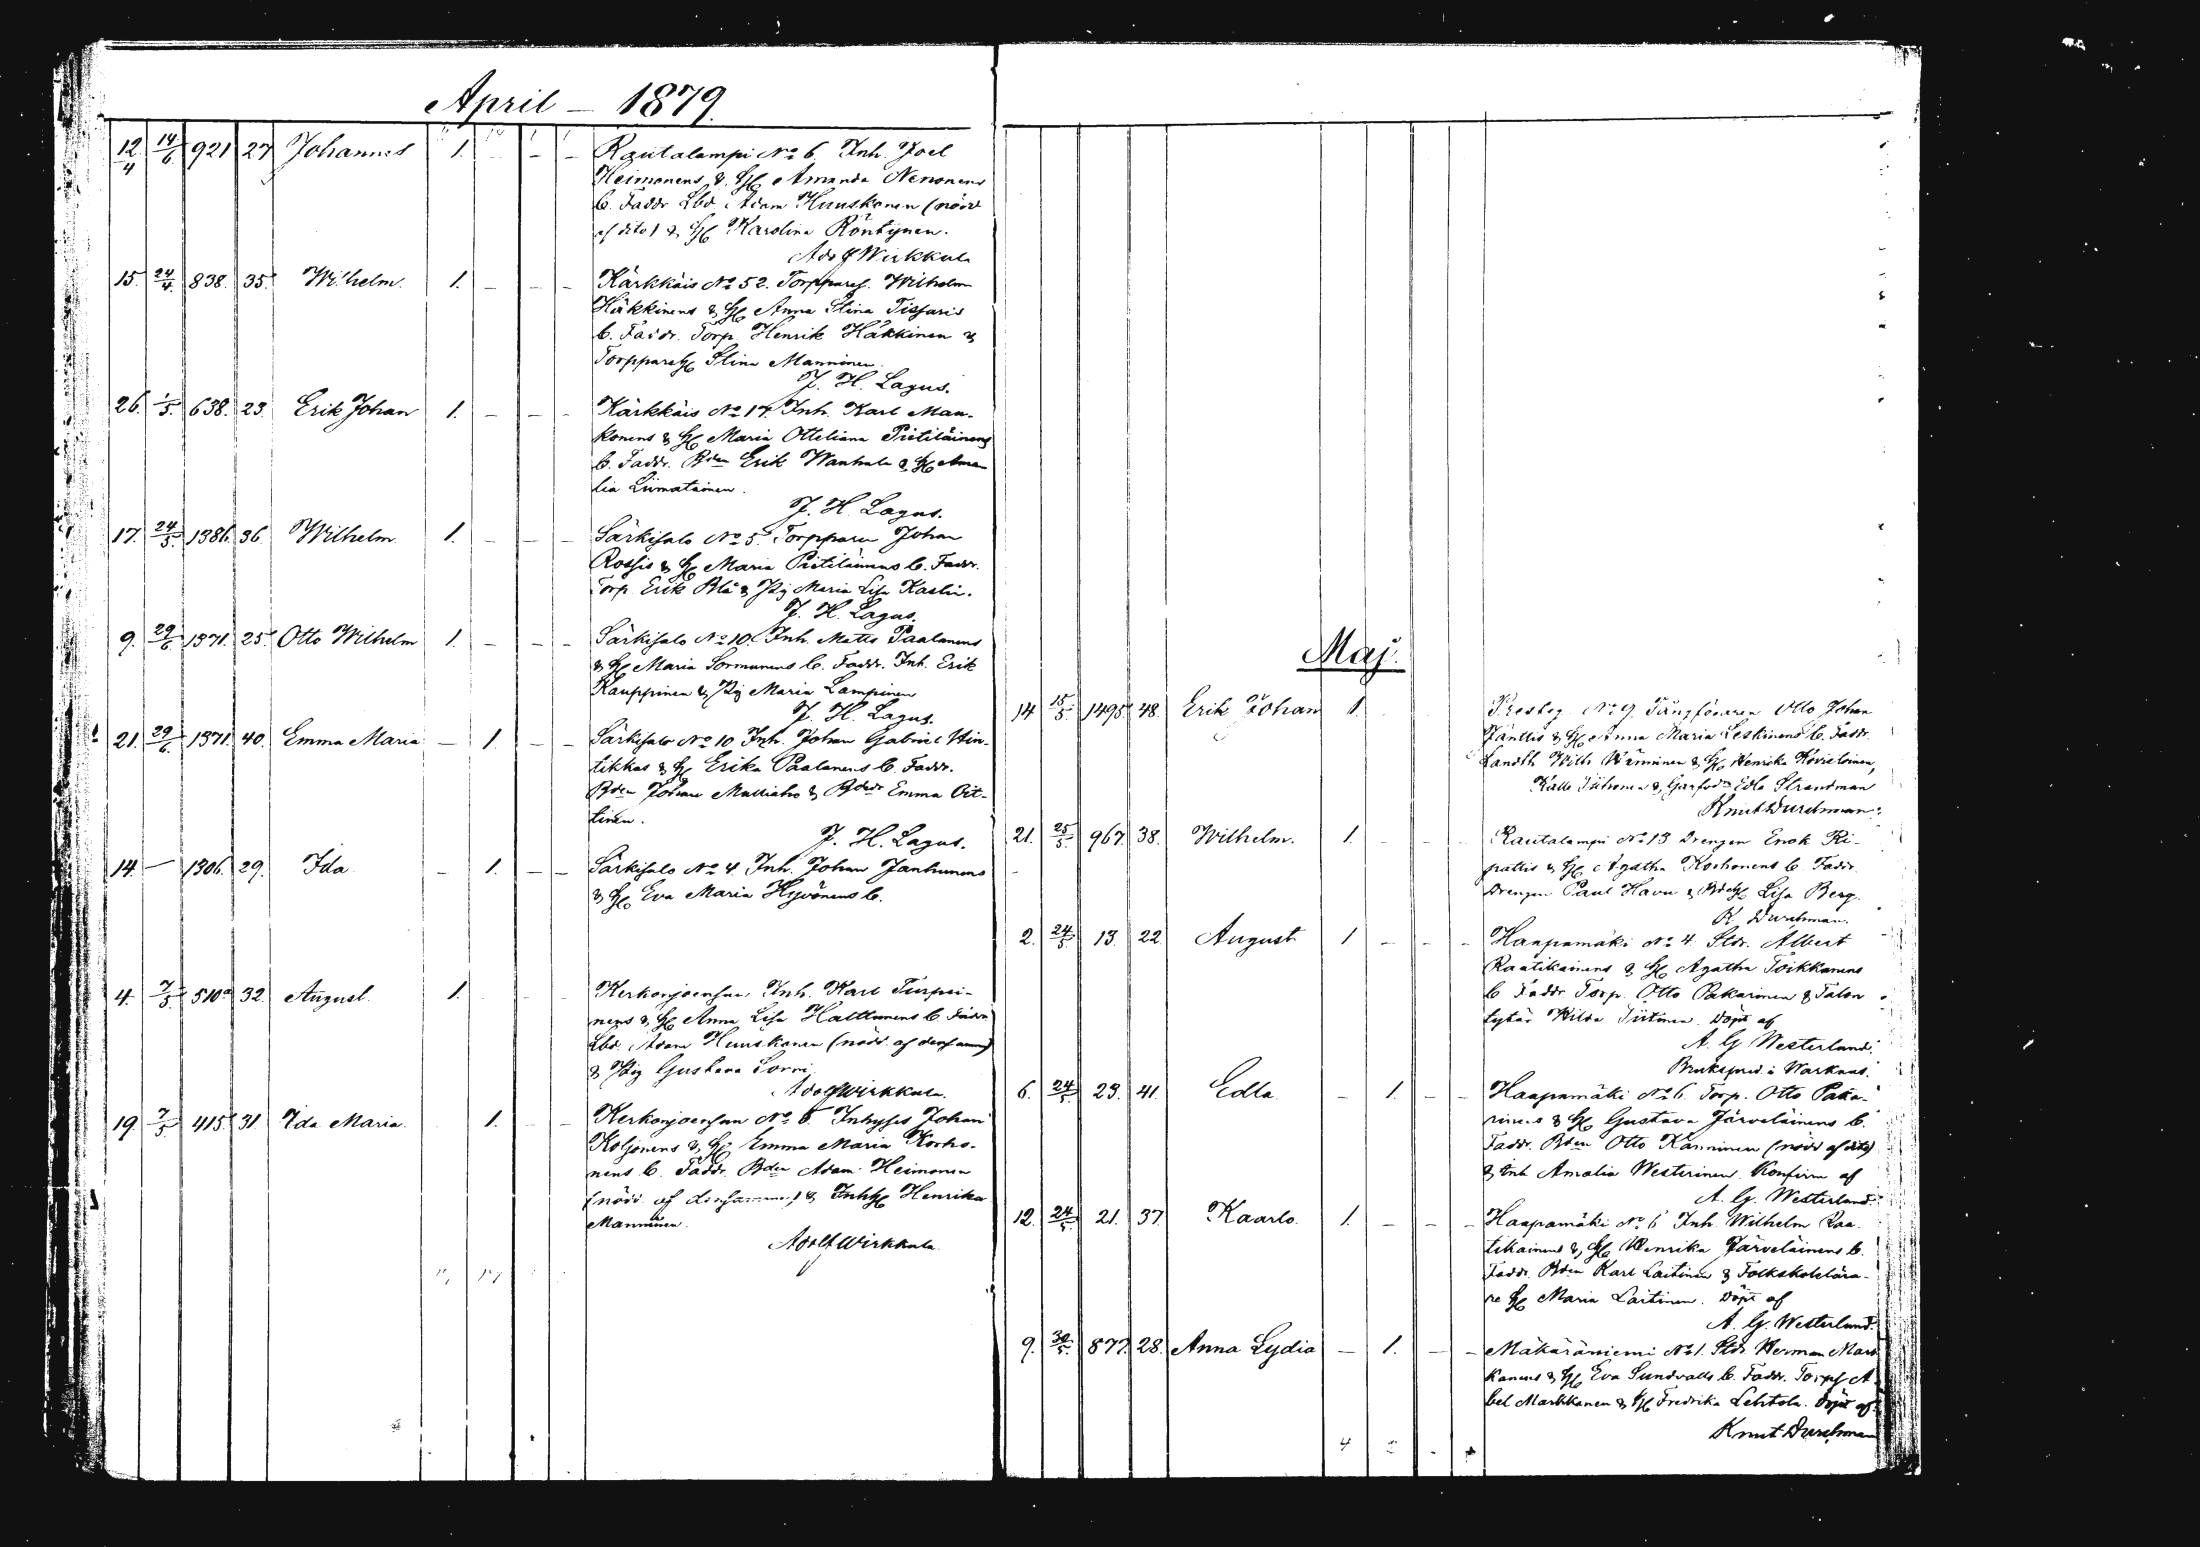 April – 1879.
12/4 14/6 921 27 Johannes 1. - - - Rautalampi No 6. Inh. Joel
Heimonens & H Amanda Nenonens
b. Faddr Lbd. Adam Huuskonen (nöddt
af dito) & H Karolina Röntynen.
Adolf Wirkkula
15. 24/4. 838. 35. Wilhelm. 1. - - - Kärkkäis No 52. Torppares. Wilhelm
Häkkinens & H Anna Stina Tissaris
b. Faddr. Torp. Henrik Häkkinen &
Torppare H Stina Manninen.
J. H. Lagus.
26. 1/5. 638. 23. Erik Johan 1. - - - Kärkkäis No 17. Inh. Karl Man-
konens & H Maria Otteliana Pietiläinens
b. Faddr. Bden Erik Wanhala & H Ama
lia Liimatainen.
J. H. Lagus.
17. 24/5. 1386. 36. Wilhelm. 1. - - - Särkisalo No 5. Torppare Johan
Rossis & H Maria Pietiläinens b. Faddr.
Torp. Erik Blå & Pig Maria Lisa Kaslin.
J. H. Lagus.
9. 29/6 1371. 25. Otto Wilhelm 1. - - - Särkisalo No 10. Inh. Matts Paalanens
& H Maria Sormunens b. Faddr. Inh. Erik
Kauppinen & Pig Maria Lampinen
J. H. Lagus.
21. 29/6 1371. 40. Emma Maria - 1. - - Särkisalo No 10 Inh. Johan Gabriel Hin-
tikkas & H Erika Paalanens b. Faddr.
Bden Johan Mulliaho & Bdedr Emma Oit-
tinen.
J. H. Lagus.
14. — 1306. 29. Ida - 1. - - Särkisalo No 4. Inh. Johan Janhunens
& H Eva Maria Hyvönens b.
4. 7/5 510a 32. August. 1. - - - Kerkonjoensuu Inh. Karl Turpei-
nens & H Anna Lisa Halttunens b Faddr
Lbd. Adam Huuskonen (nödd. af densamme)
& Pig Gustava Sorri
Adolf Wirkkula.
19. 7/5 415 31. Ida Maria. 1. - - Kerkonjoensuu No 6. Inhyses Johan
Koljonens & H Emma Maria Korho-
nens b. Faddr. Bden Adam Heimonen
(nödd af densamme) & Inh H Henrika
Manninen.
Adolf Wirkkula.
Maj.
14 15/5. 1495 48. Erik Johan 1. Prestg. No 9. Fångföraren Otto Johan
Jänttis & H Anna Maria Leskinens b. Faddr.
Landth Wilh. Wänninen & H Henrika Hovieloinen,
Kalle & Edla Strandman
Knut Durchman.
21. 25/5. 967. 38. Wilhelm. 1. - - - Rautalampi No 13 Drengen Enok Ri-
pattis & H Agatha Korhonens b Faddr.
Drengen Paul Havu & Bde H Lisa Berg.
K. Durchman.
2. 24/5. 13. 22. August 1 - - - Haapamäki No 4. Stdr. Albert
Raatikainens & H Agatha Toikkanens
b Faddr Torp. Otto Pakarinen & Talon
tytär Hilda Tiitinen. Döpt af
A. G. Westerlund.
Brukspred. i Warkaus.
6. 24/5. 23. 41. Edla. - 1. - - Haapamäki No 6. Torp. Otto Paka-
rinens & H Gustava Järveläinens b.
Faddr. Bden Otto Kanninen (nödd af dito)
& Inh Amalia Westerinen. Konfirm af
A. G. Westerlund.
12. 24/5. 21. 37. Kaarlo. 1. - - - Haapamäki No 6 Inh. Wilhelm Raa-
tikainens & H Henrika Järveläinens b.
Faddr. Bden Karl Laitinen & Folkskolelära-
re H Maria Laitinen. Döpt af
A. G. Westerlund.
9. 30/5. 877. 28. Anna Lydia - 1. - - Mäkäräniemi No 1. Stdr. Herman Mark
kanens & H Eva Sundvalls b. Faddr. Torps A
bel Markkanen & H Fredrika Lehtola. Döpt af
Knut Durchman
4